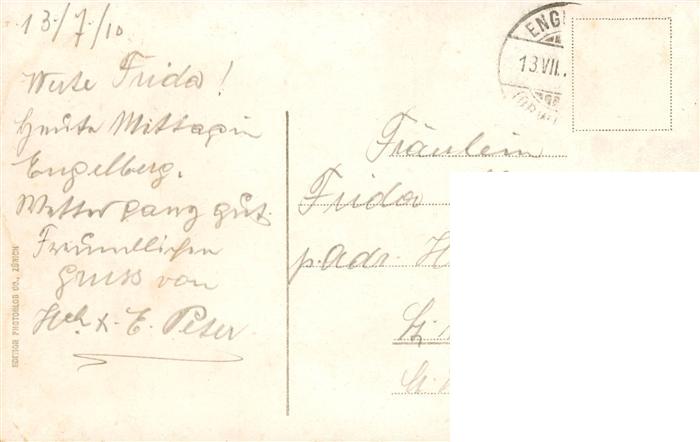 13/7/10
Werte Frida!
Heute Mittag in
Engelberg.
Wetter ganz gut.
Freundlichen
Gruss von
Hch & E. Peter
EDITION PHOTOGLOB CO., ZÜRICH
ENG
13.VII.
Fräulein
Frida
p. adr. H